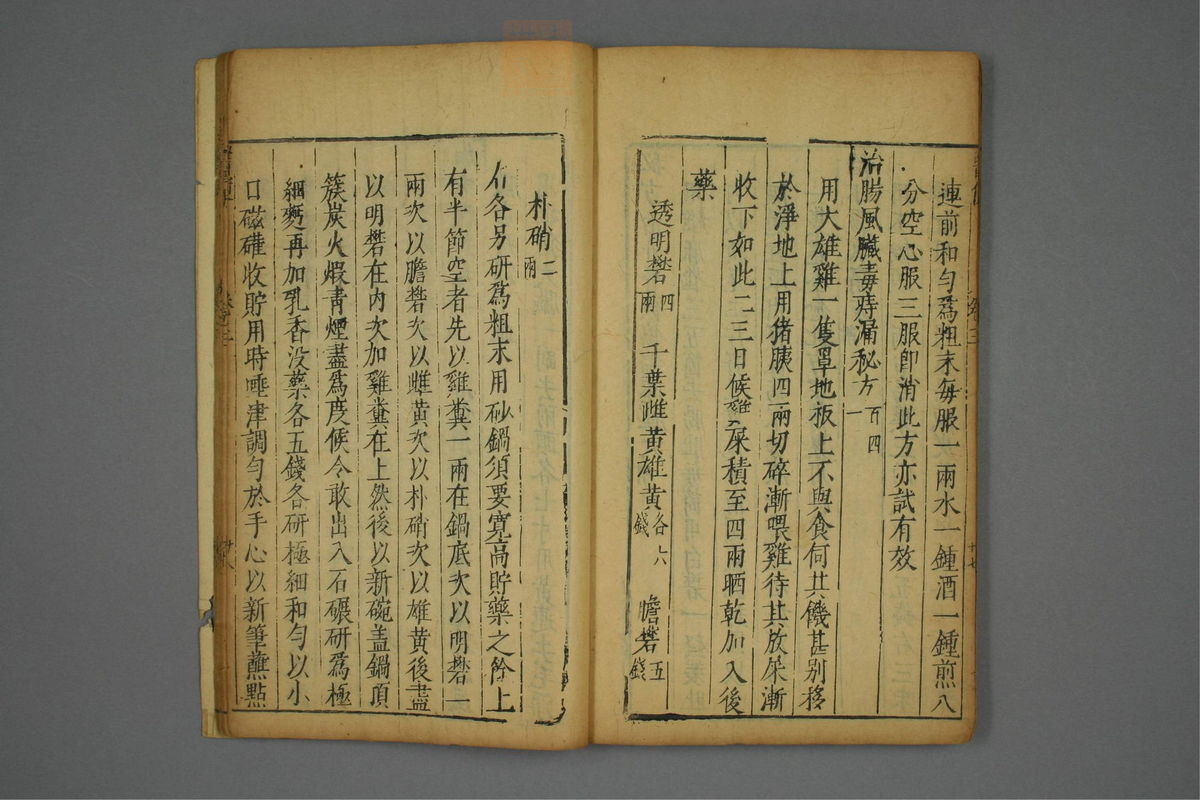 連前和勻爲粗末每服一兩水一鍾酒一鍾煎八
分空心服三服卽消此方亦試有效
治腸風臟毒痔漏秘方百四一
用大雄雞一隻罩地板上不與食伺其饑甚别移
於淨地上用猪胰四兩切碎漸喂雞待其放屎漸
收下如此二三日候雞屎積至四兩晒乾加入後
藥
透明礬四兩 千葉雌黃雄黃各六錢 膽礬五錢
朴硝二兩
右各另研爲粗末用砂鍋須要寬高貯藥之餘上
有半節空者先以雞糞一兩在鍋底次以明礬一
兩次以膽礬次以雌黃次以朴硝次以雄黃後盡
以明礬在内次加雞糞在上然後以新碗盖鍋頂
簇炭火煆靑煙盡爲度候令敢出入石碾研爲極
細麪再加乳香没藥各五錢各研極細和勻以小
口磁礶收貯用時唾津調勻於手心以新筆蘸點